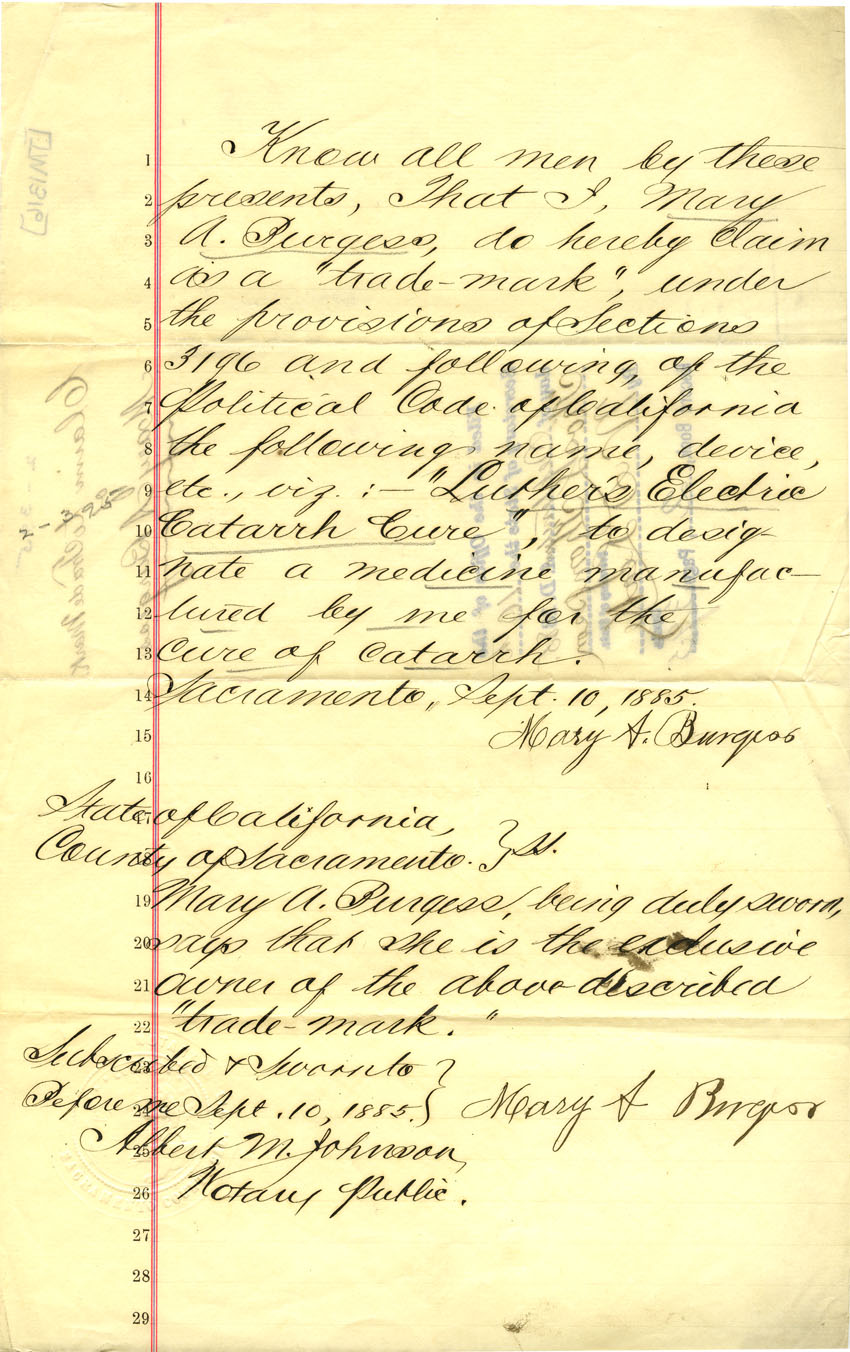 1 Know all men by these
2 presents, That I, Mary
3 A. Burgess, do hereby claim
4 as a "trade-mark", under
5 the provisions of Sections
6 3196 and following, of the
7 Political Code of California
8 the following name, device,
9 etc., viz. :— "Luther's Electric
10 Catarrh Cure", to desig-
11 nate a medicine manufac-
12 tured by me for the
13 cure of catarrh.
14 Sacramento, Sept. 10, 1885.
15 Mary A. Burgess
16
17 State of California,
18 County of Sacramento. } ss.
19 Mary A. Burgess, being duly sworn,
20 says that she is the exclusive
21 owner of the above described
22 "trade-mark."
23 Subscribed & Sworn to }
24 Before me Sept. 10, 1885. } Mary A Burgess
25 Albert M. Johnson,
26 Notary Public.
27
28
29